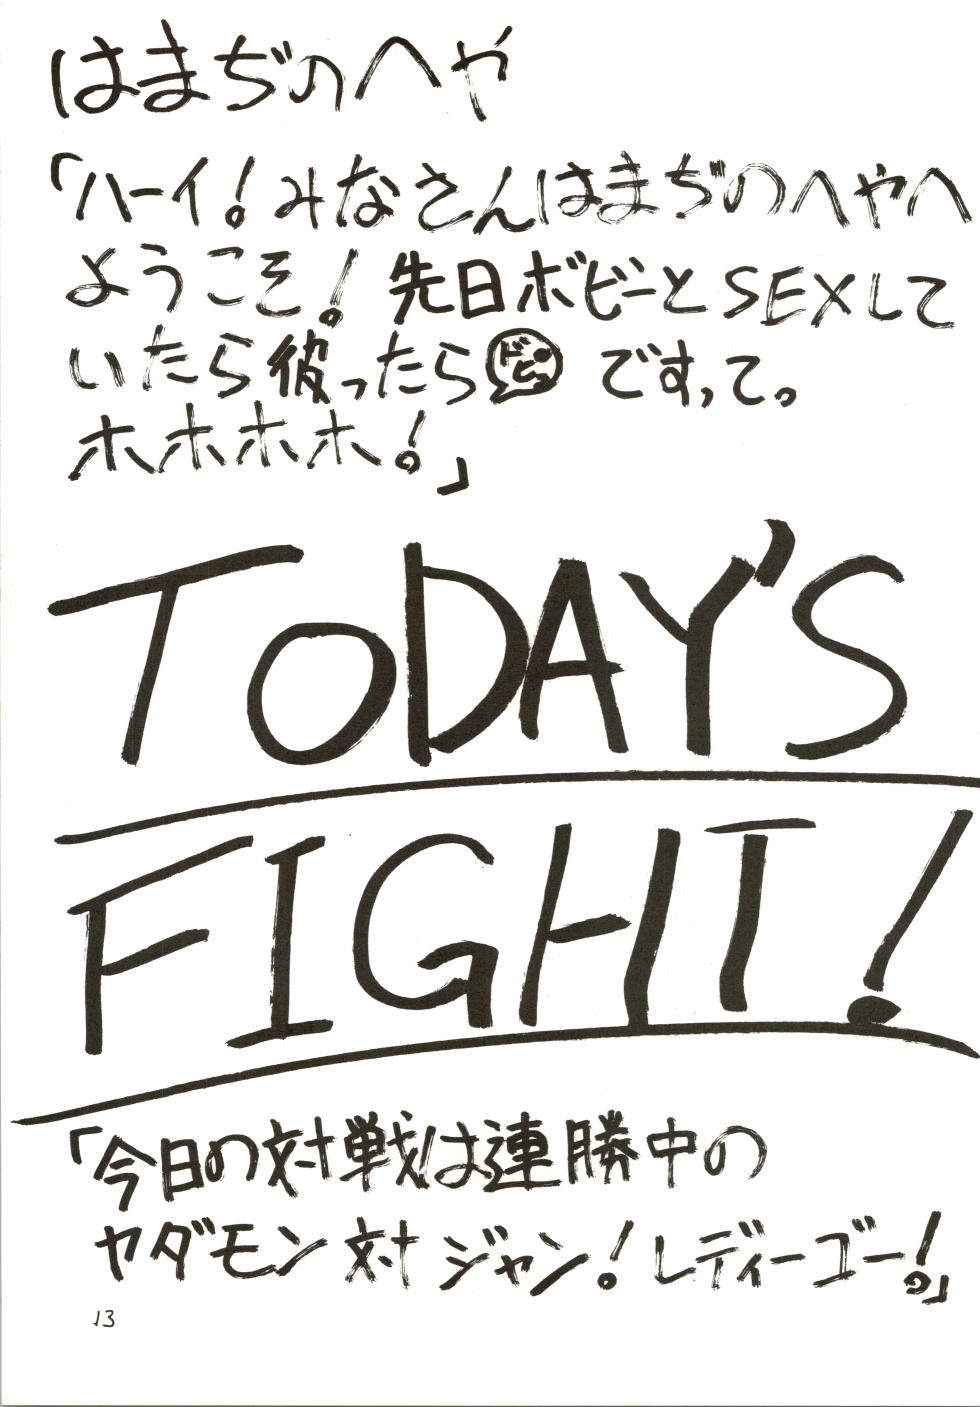 はまぢのへや
「ハーイ!みなさんはまぢのへやへ
ようこそ!先日ボビーとSEXして
いたら彼ったらドピッですって。
ホホホホ!」
TODAY'S
FIGHT!
「今日の対戦は連勝中の
ヤダモン対ジャン!レディーゴー!」
13